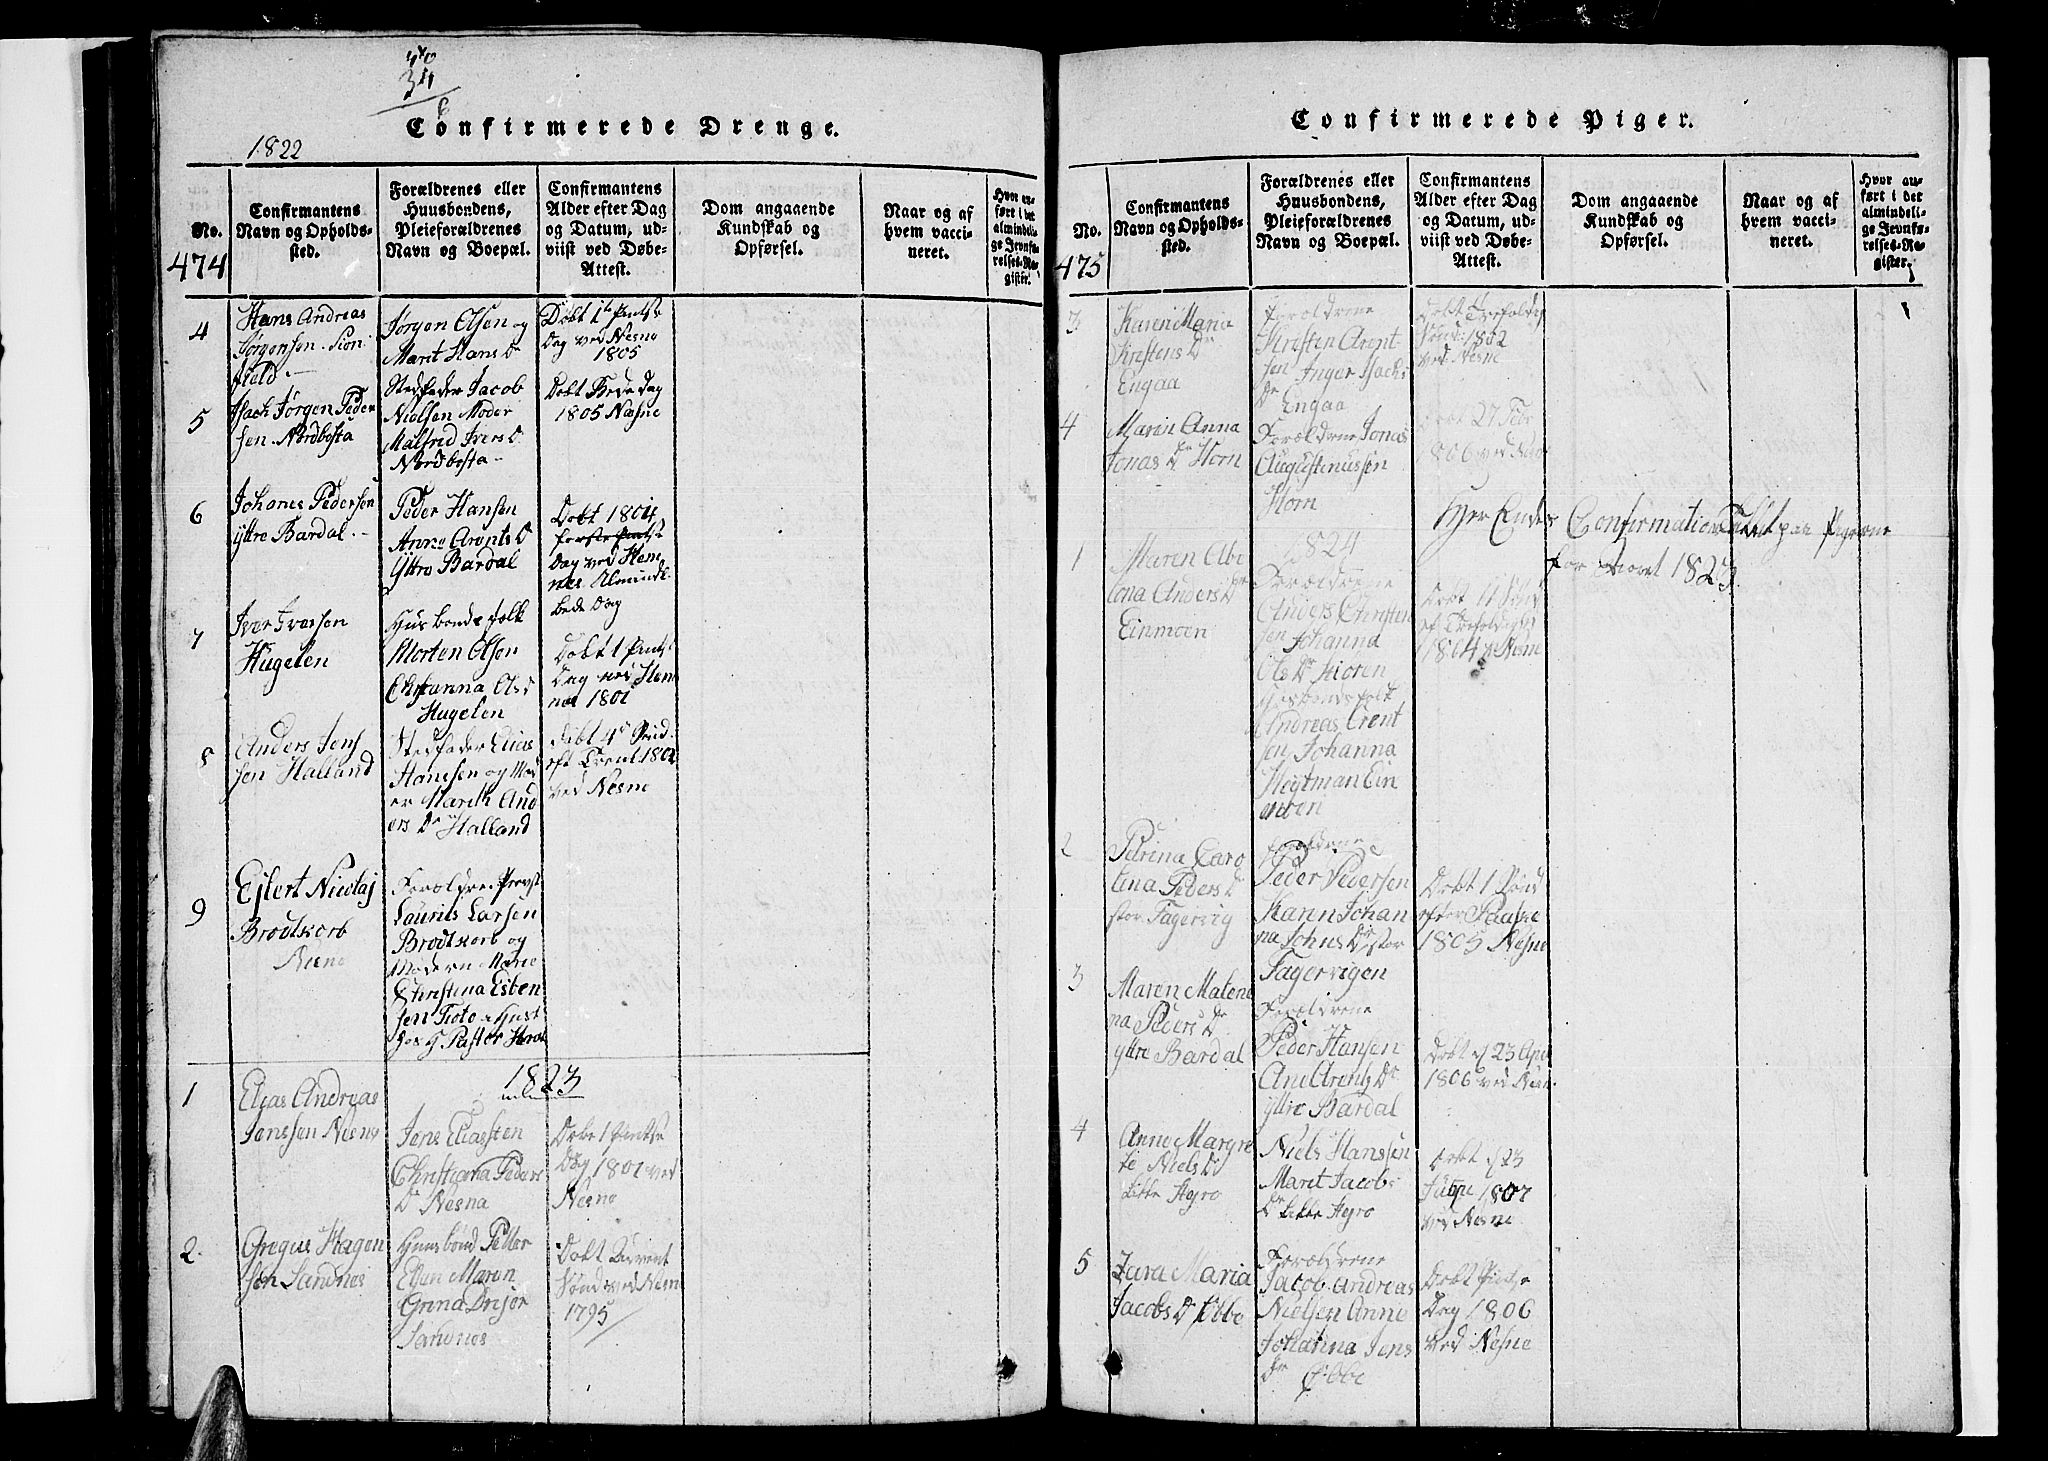 34
6
Confirmerede Drenge.
1822
No.
474
Confirmantens
Navn og Opholds-
sted.
Forældrenes eller
Huusbondens,
Pleieforældrenes
Navn og Boepæl.
Confirmantens
Alder efter Dag
og Datum, ud-
viist ved Døbe-
Attest.
Dom angaaende
Kundskab og
Opførsel.
Naar og af
hvem vacci-
neret.
Hvor an-
ført i det
almindeli-
ge Jevnfø-
relses-Re-
gister.
4
Hans Andreas
Jørgensen
Jørgen Olsen og
Marit Hans Dr
Døbt 1te Pintse
Dag ved Nesne
1805
5
Isach Jørgen Peder
sen Nordbosta
Stedfader Jacob
Nielsen Moder
Malfrid Ivers D.
Nordbosta
Døbt Bededag
1805 Nesne
6
Johanes Pedersen
yttre Bardal
Peder Hansen
Anne Aronts D
Yttre Bardal
Døbt 1804
første Pintse
Dag ved Hem
nes Almindl.
bededag
7
Iver Iversen
Hugelen
Husbondefolk
Morten Olsen
Christianna Ols D
Hugelen
Døbt 1 Pintse
Dag ved Hem
nes 1801
8
Anders Jens
sen Halland
Stedfader Elias
Hansen og Mod
er Marith And
ers Dr Halland
Døbt 4de Sønd.
eft Trenit. 1802
ved Nesne
9
Ejlert Nicolaj
Brodtkorb
Nesne
Forældre Provst
Laurits Larsen
Brodtkorb og
Moderen Marie
Christina Esben
sen
hos H. Pastor
1823
1
Elias Andreas
Jenssen Nesne
Jens Eliassen
Christianna Peders
Dr Nesna
Døbt 1 Pintse
Dag 1801 ved
Nesne
2
Gregus Hagen
sen Sandnes
Huusbond Petter
Maren
Sandnes
Døbt
Sønd ved Nesne
1795
Confirmerede Piger.
No.
475
Confirmantens
Navn og Opholds-
sted.
Forældrenes eller
Huusbondens,
Pleieforældrenes
Navn og Boepæl.
Confirmantens
Alder efter Dag
og Datum, ud-
viist ved Døbe-
Attest.
Dom angaaende
Kundskab og
Opførsel.
Naar og af
hvem vacci-
neret.
Hvor an-
ført i det
almindeli-
ge Jevnfø-
relses-Re-
gister.
3
Karen Maria
Kirstens Dr
Engaa
Forældrene
Kirsten Arent
sen Inger Isachs
Dr Engaa
Døbt Trefoldig
Sønd. 1802
ved Nesne
4
Maren Anna
Jonas Dr Horn
Forældrene Jonas
Augustinussen
Horn
Døbt 27 Febr
1806 ved Nesne
Her Endes Confirmation Tallet paa Pigerne
for Aaret 1823
1824
1
Maren Abe
lona Anders Dr
Einmoen
Forældrene
Anders Christen
sen Johanna
Ols Dr
Husbondefolk
Andreas Arent
sen Johanna
Hegtman Ein
moen
Døbt 11 Sønd
eft Trefoldighed
1804 v Nesne
2
Petrina Caro
lina Peders D
stor Fagervig
Forældrene
Peder Pedersen
Karen Johan
na Johns Dr stor
Fagervigen
Døbt 1 Sønd
efter Paaske
1805 Nesne
3
Maren Malene
na Peders Dr
yttre Bardal
Forældrene
Peder Hansen
Ane Arents Dr
yttre Bardal
Døbt d 23 Apr
1806 ved Nesne
4
Anne Margre
te Niels D
Litle
Niels Hanssen
Marit Jacobs
Dr
Døbt d 23
1807
ved Nesne
5
Zara Maria
Jacobs Dr
Forældrene
Jacob Andreas
Nielsen Anne
Johanna Jens
Dr
Døbt Pintse
Dag 1806
ved Nesne